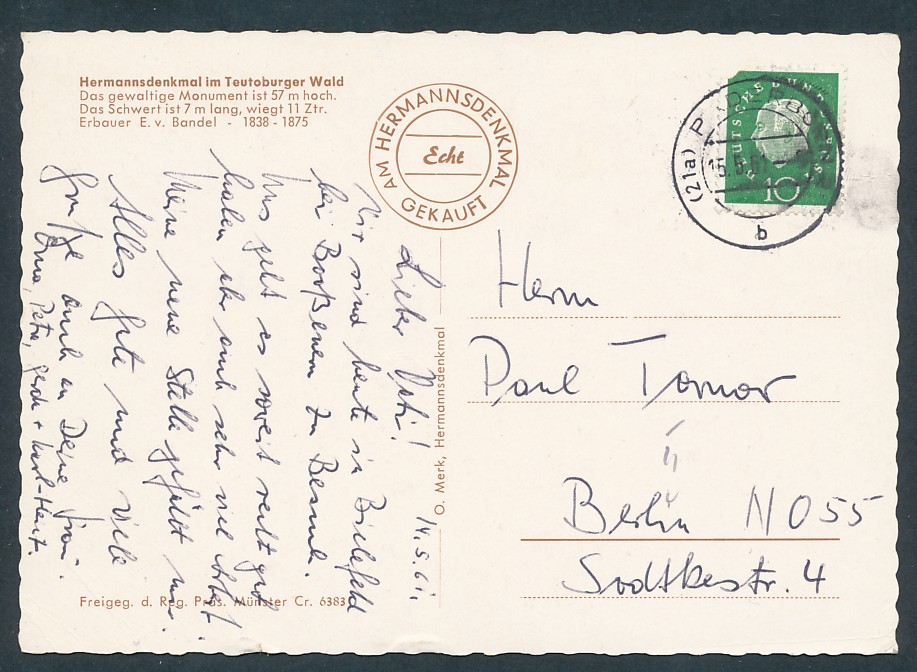 Hermannsdenkmal im Teutoburger Wald
Das gewaltige Monument ist 57 m hoch.
Das Schwert ist 7 m lang, wiegt 11 Ztr.
Erbauer E. v. Bandel - 1838 - 1875
AM HERMANNSDENKMAL
Echt
GEKAUFT
DEUTSCHE BUNDESPOST
10
(21a) PADERBORN
15.5.61
b
14.5.61.
Lieber Vati!
Wir sind heute in Bielefeld
bei Booßenem zu Besuch.
Uns geht es soweit recht gut
haben aber auch sehr viel Arbeit.
Meine neue Stelle gefällt mir.
Alles gute und viele
Grüße auch an Deine Frau.
Oma, Petra, Gerda + Karl-Heinz.
O. Merk, Hermannsdenkmal
Herrn
Paul Tornow
Berlin NO55
Sodtkestr. 4
Freigeg. d. Reg. Präs. Münster Cr. 6383